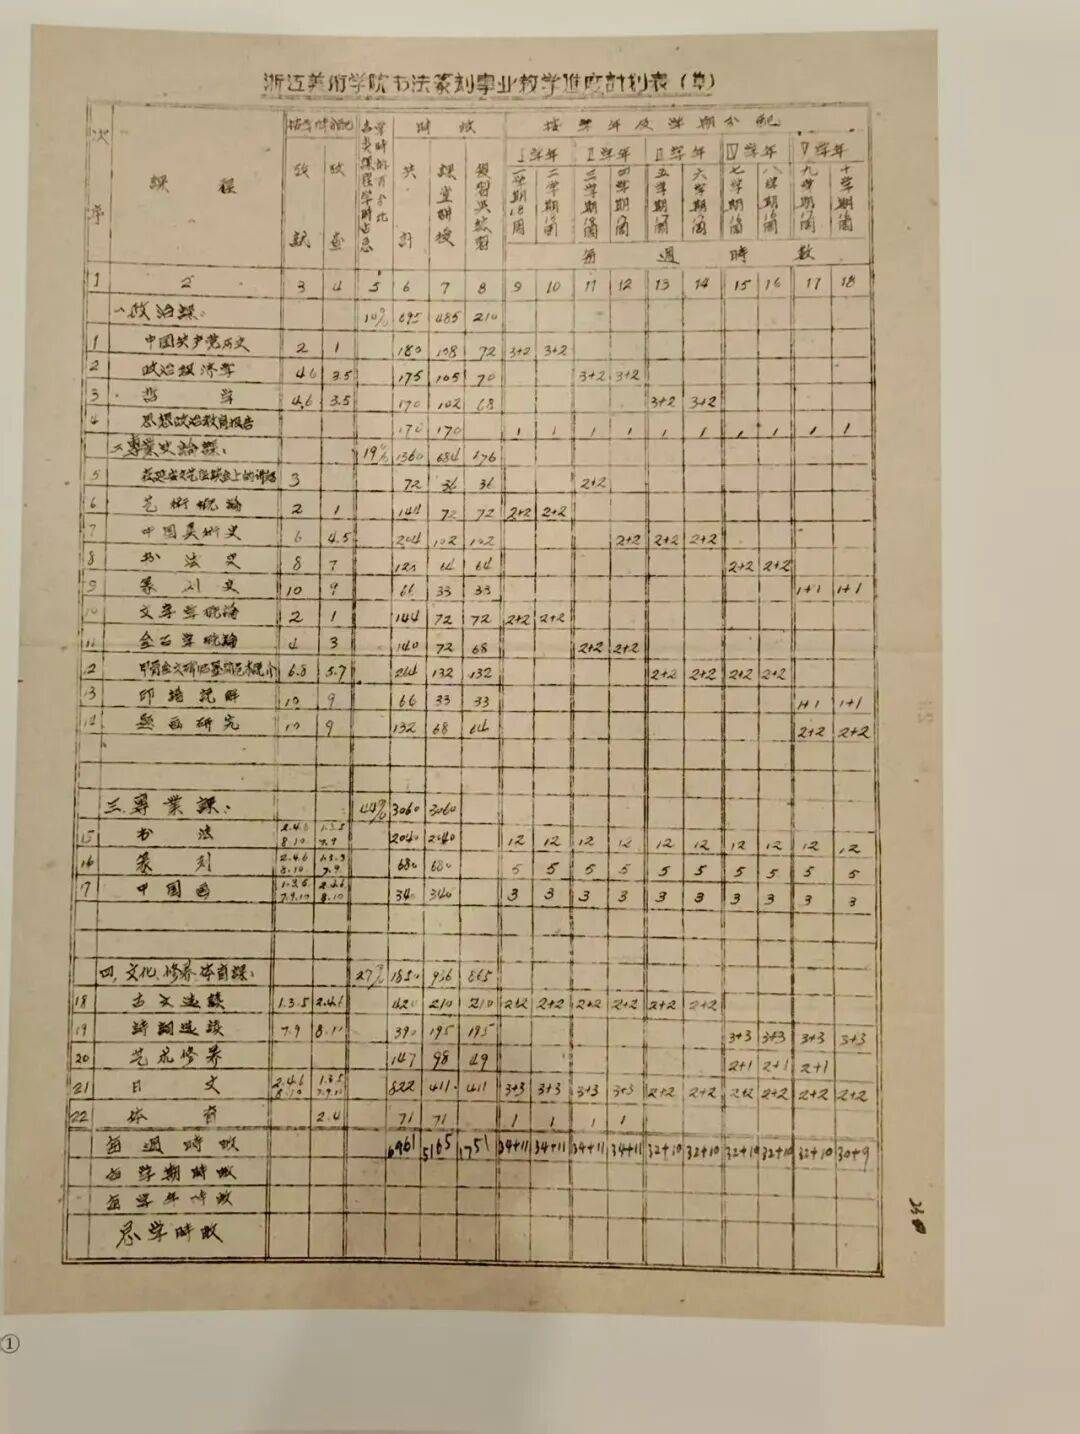 浙江美術学院书法篆刻专业教学進度計划表（草）
次序 課程 按学期分配 考試 考查 各类課程学時占总学時的百分比 時数 共計 課堂講授 复習实習 按学年及学期分配
I学年 II学年 III学年 IV学年 V学年
一学期18周 二学期 三学期 四学期 五学期 六学期 七学期 八学期 九学期 十学期
每週時数
1 2 3 4 5 6 7 8 9 10 11 12 13 14 15 16 17 18
一、政治課： 10% 695 485 210
1 中国共产党历史 2 1 180 108 72 3+2 3+2
2 政治经济学 4.6 3.5 175 105 70 3+2 3+2
3 哲学 4.6 3.5 170 102 68 3+2 3+2
4 思想政治教育报告 170 170 1 1 1 1 1 1 1 1 1 1
二、專業史論課： 19% 1360 684 676
5 在延安文艺座谈会上的讲话 3 72 36 36 2+2
6 艺術概論 2 1 144 72 72 2+2 2+2
7 中国美術史 6 4.5 204 102 102 2+2 2+2 2+2
8 书法史 8 7 64 64 2+2 2+2
9 篆刻史 10 9 66 33 33 1+1 1+1
10 文字学概論 2 1 144 72 72 2+2 2+2
11 金石学概論 4 3 140 72 68 2+2 2+2
12 6.8 5.7 264 132 132 2+2 2+2 2+2 2+2
13 印譜 10 9 66 33 33 1+1 1+1
14 題画研究 10 9 132 68 64 2+2 2+2
三、專業課： 44% 3060 3060
15 书法 2.4.6 8.10 1.3.5 7.9 2040 2040 12 12 12 12 12 12 12 12 12 12
16 篆刻 2.4.6 8.10 1.3.5 7.9 680 680 5 5 5 5 5 5 5 5 5 5
17 中国画 1.3.5 7.9.10 2.4.6 8.10 340 340 3 3 3 3 3 3 3 3 3 3
四、文化、修养、体育課： 27% 1850 936 865
18 古文选讀 1.3.5 2.4.6 420 210 210 2+2 2+2 2+2 2+2 2+2 2+2
19 詩詞选讀 7.9 8.10 390 195 195 3+3 3+3 3+3 3+3
20 艺术修养 147 98 49 2+1 2+1 2+1
21 日文 2.4.6 8.10 1.3.5 7.9.10 822 411 411 3+3 3+3 3+3 3+3 2+2 2+2 2+2 2+2 2+2 2+2
22 体育 2.4 71 71 1 1 1 1
每週時数 6961 5165 1751 34+11 34+11 34+11 34+11 32+10 32+10 32+10 32+10 32+10 30+9
每学期時数
每学年時数
总学時数
①